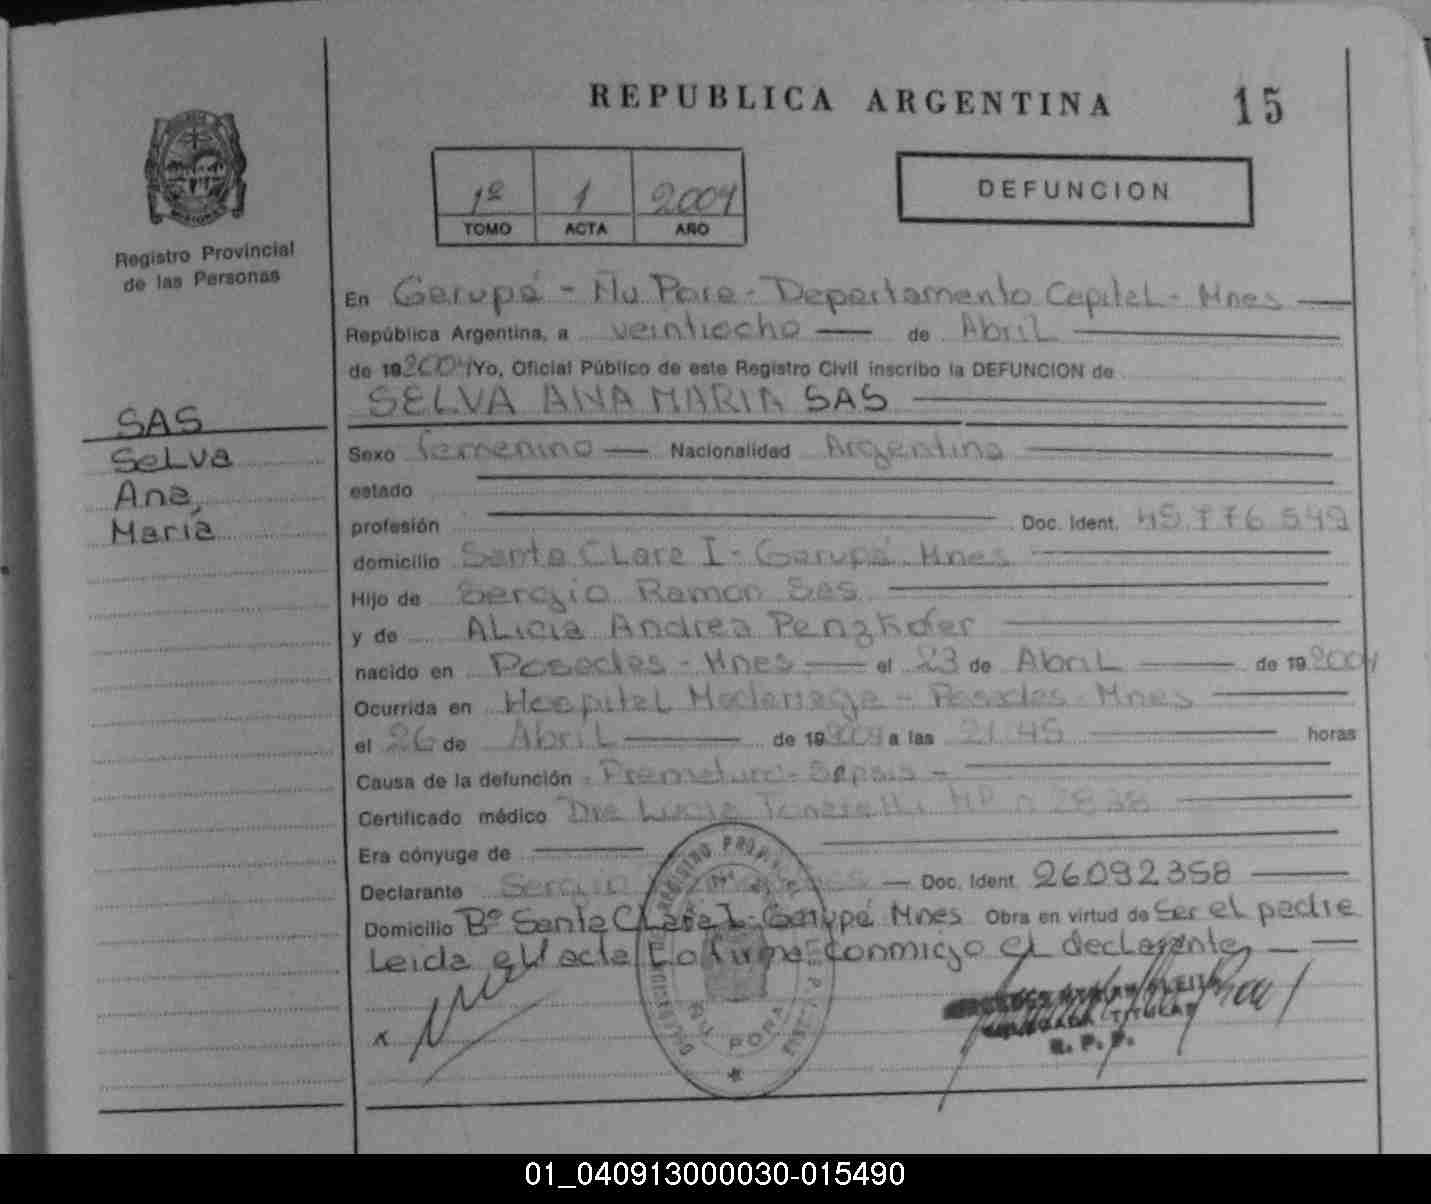 REPUBLICA ARGENTINA 15
1º 1 2004
TOMO ACTA AÑO
DEFUNCION
MISIONES
Registro Provincial
de las Personas
SAS
Selva
Ana,
María
En Garupá - Ñu Pora - Departamento Capital - Mnes
República Argentina, a veintiocho de Abril
de 192004 Yo, Oficial Público de este Registro Civil inscribo la DEFUNCION de
SELVA ANA MARIA SAS
Sexo femenino Nacionalidad Argentina
estado
profesión Doc. Ident. 45.776.549
domicilio Santa Clara I - Garupá Mnes
Hijo de Sergio Ramon Sas
y de Alicia Andrea Penzkofer
nacido en Posadas - Mnes el 23 de Abril de 192004
Ocurrida en Hospital Madariaga - Posadas - Mnes
el 26 de Abril de 192004 a las 21:45 horas
Causa de la defunción - Prematura - Sepsis -
Certificado médico Dra Lucia MP n 2838
Era cónyuge de
Declarante Sergio Doc. Ident. 26092358
Domicilio Bº Santa Clara I - Garupá Mnes Obra en virtud de ser el padre
Leida el acta La firma conmigo el declarante
x
REGISTRO PROVINCIAL
ÑU PORA
TITULAR
R. P. P.
01_040913000030-015490